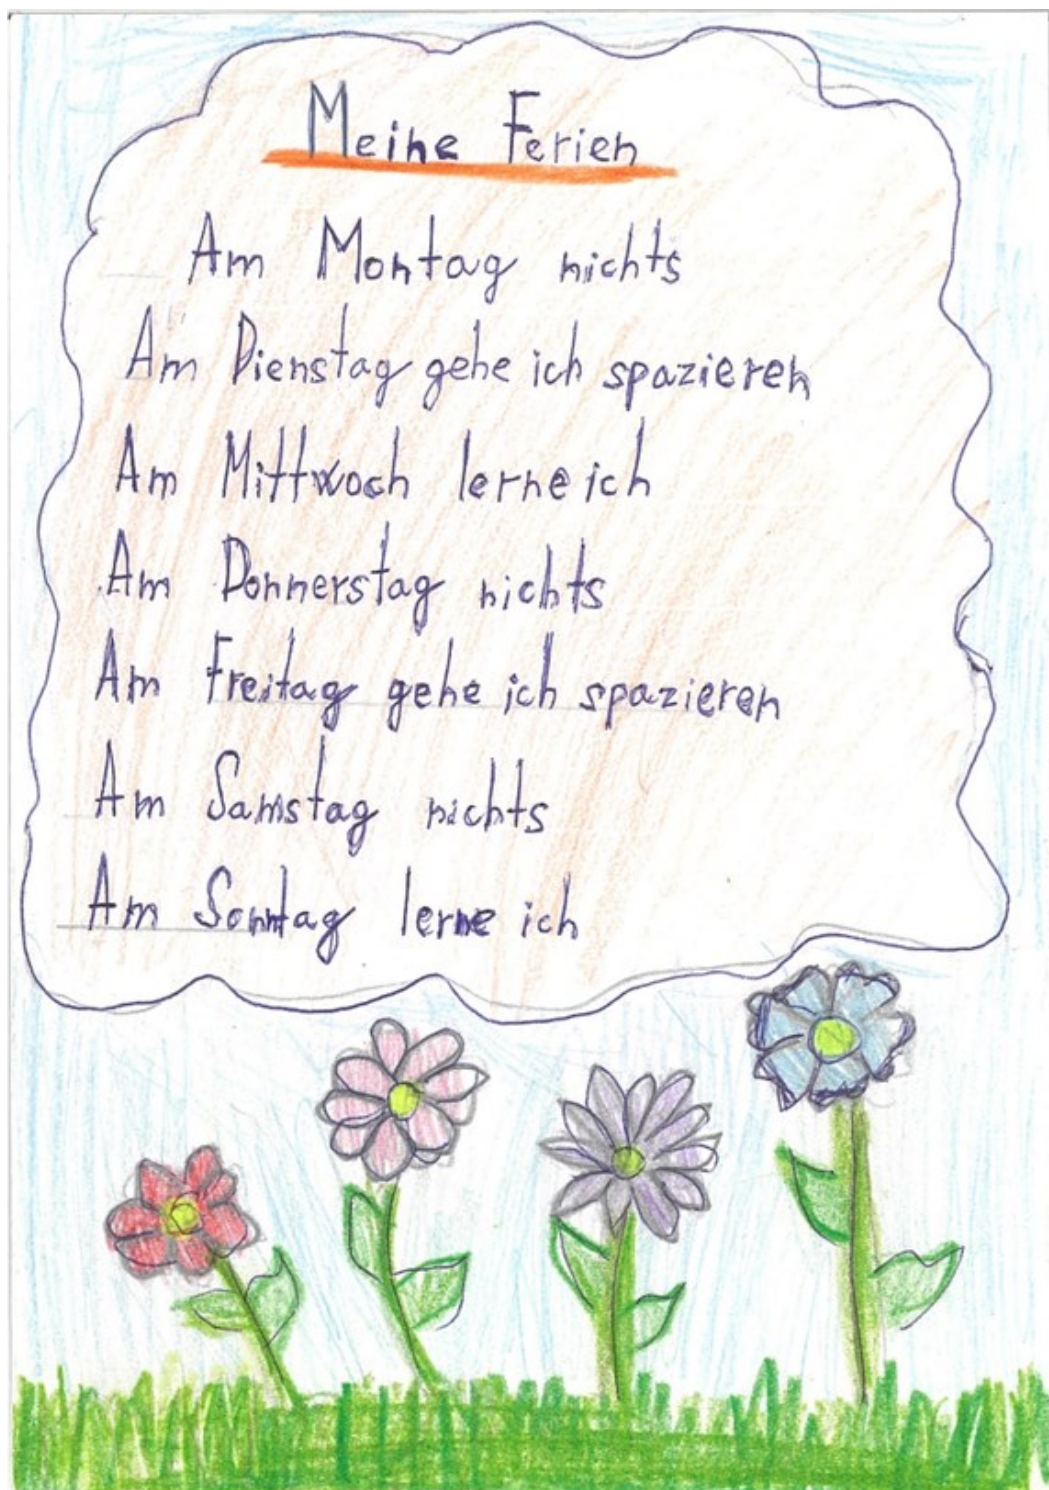 Meine Ferien
Am Montag nichts
Am Dienstag gehe ich spazieren
Am Mittwoch lerne ich
Am Donnerstag nichts
Am Freitag gehe ich spazieren
Am Samstag nichts
Am Sonntag lerne ich